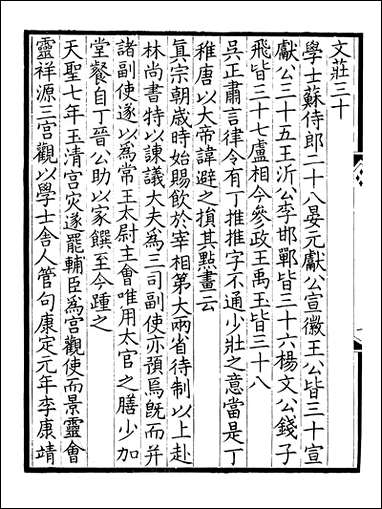 文莊三十
學士蘇侍郎二十八晏元獻公宣徽王公皆三十宣
獻公三十五王沂公李邯鄲皆三十六楊文公錢子
飛皆三十七盧相今參政王禹玉皆三十八
吳正肅言律令有丁推推字不通少壯之意當是丁
稚唐以大帝諱避之損其點畫云
真宗朝歲時始賜飲於宰相第大兩省待制以上赴
林尚書特以諫議大夫為三司副使亦預焉旣而并
諸副使遂以為常王太尉主會唯用太官之膳少加
堂餐自丁晉公助以家饌至今踵之
天聖七年玉清宮灾遂罷輔臣為宮觀使而景靈會
靈祥源三宮觀以學士舍人管句康定元年李康靖